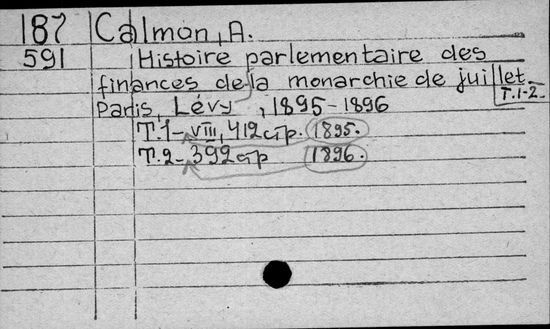 187 Calmon, A.
591 Histoire parlementaire des
finances de la monarchie de juillet.
T.1-2.
Paris, Lévy, 1895-1896
T.1- VIII, 412 стр. 1895.
T.2- 392 стр 1896.